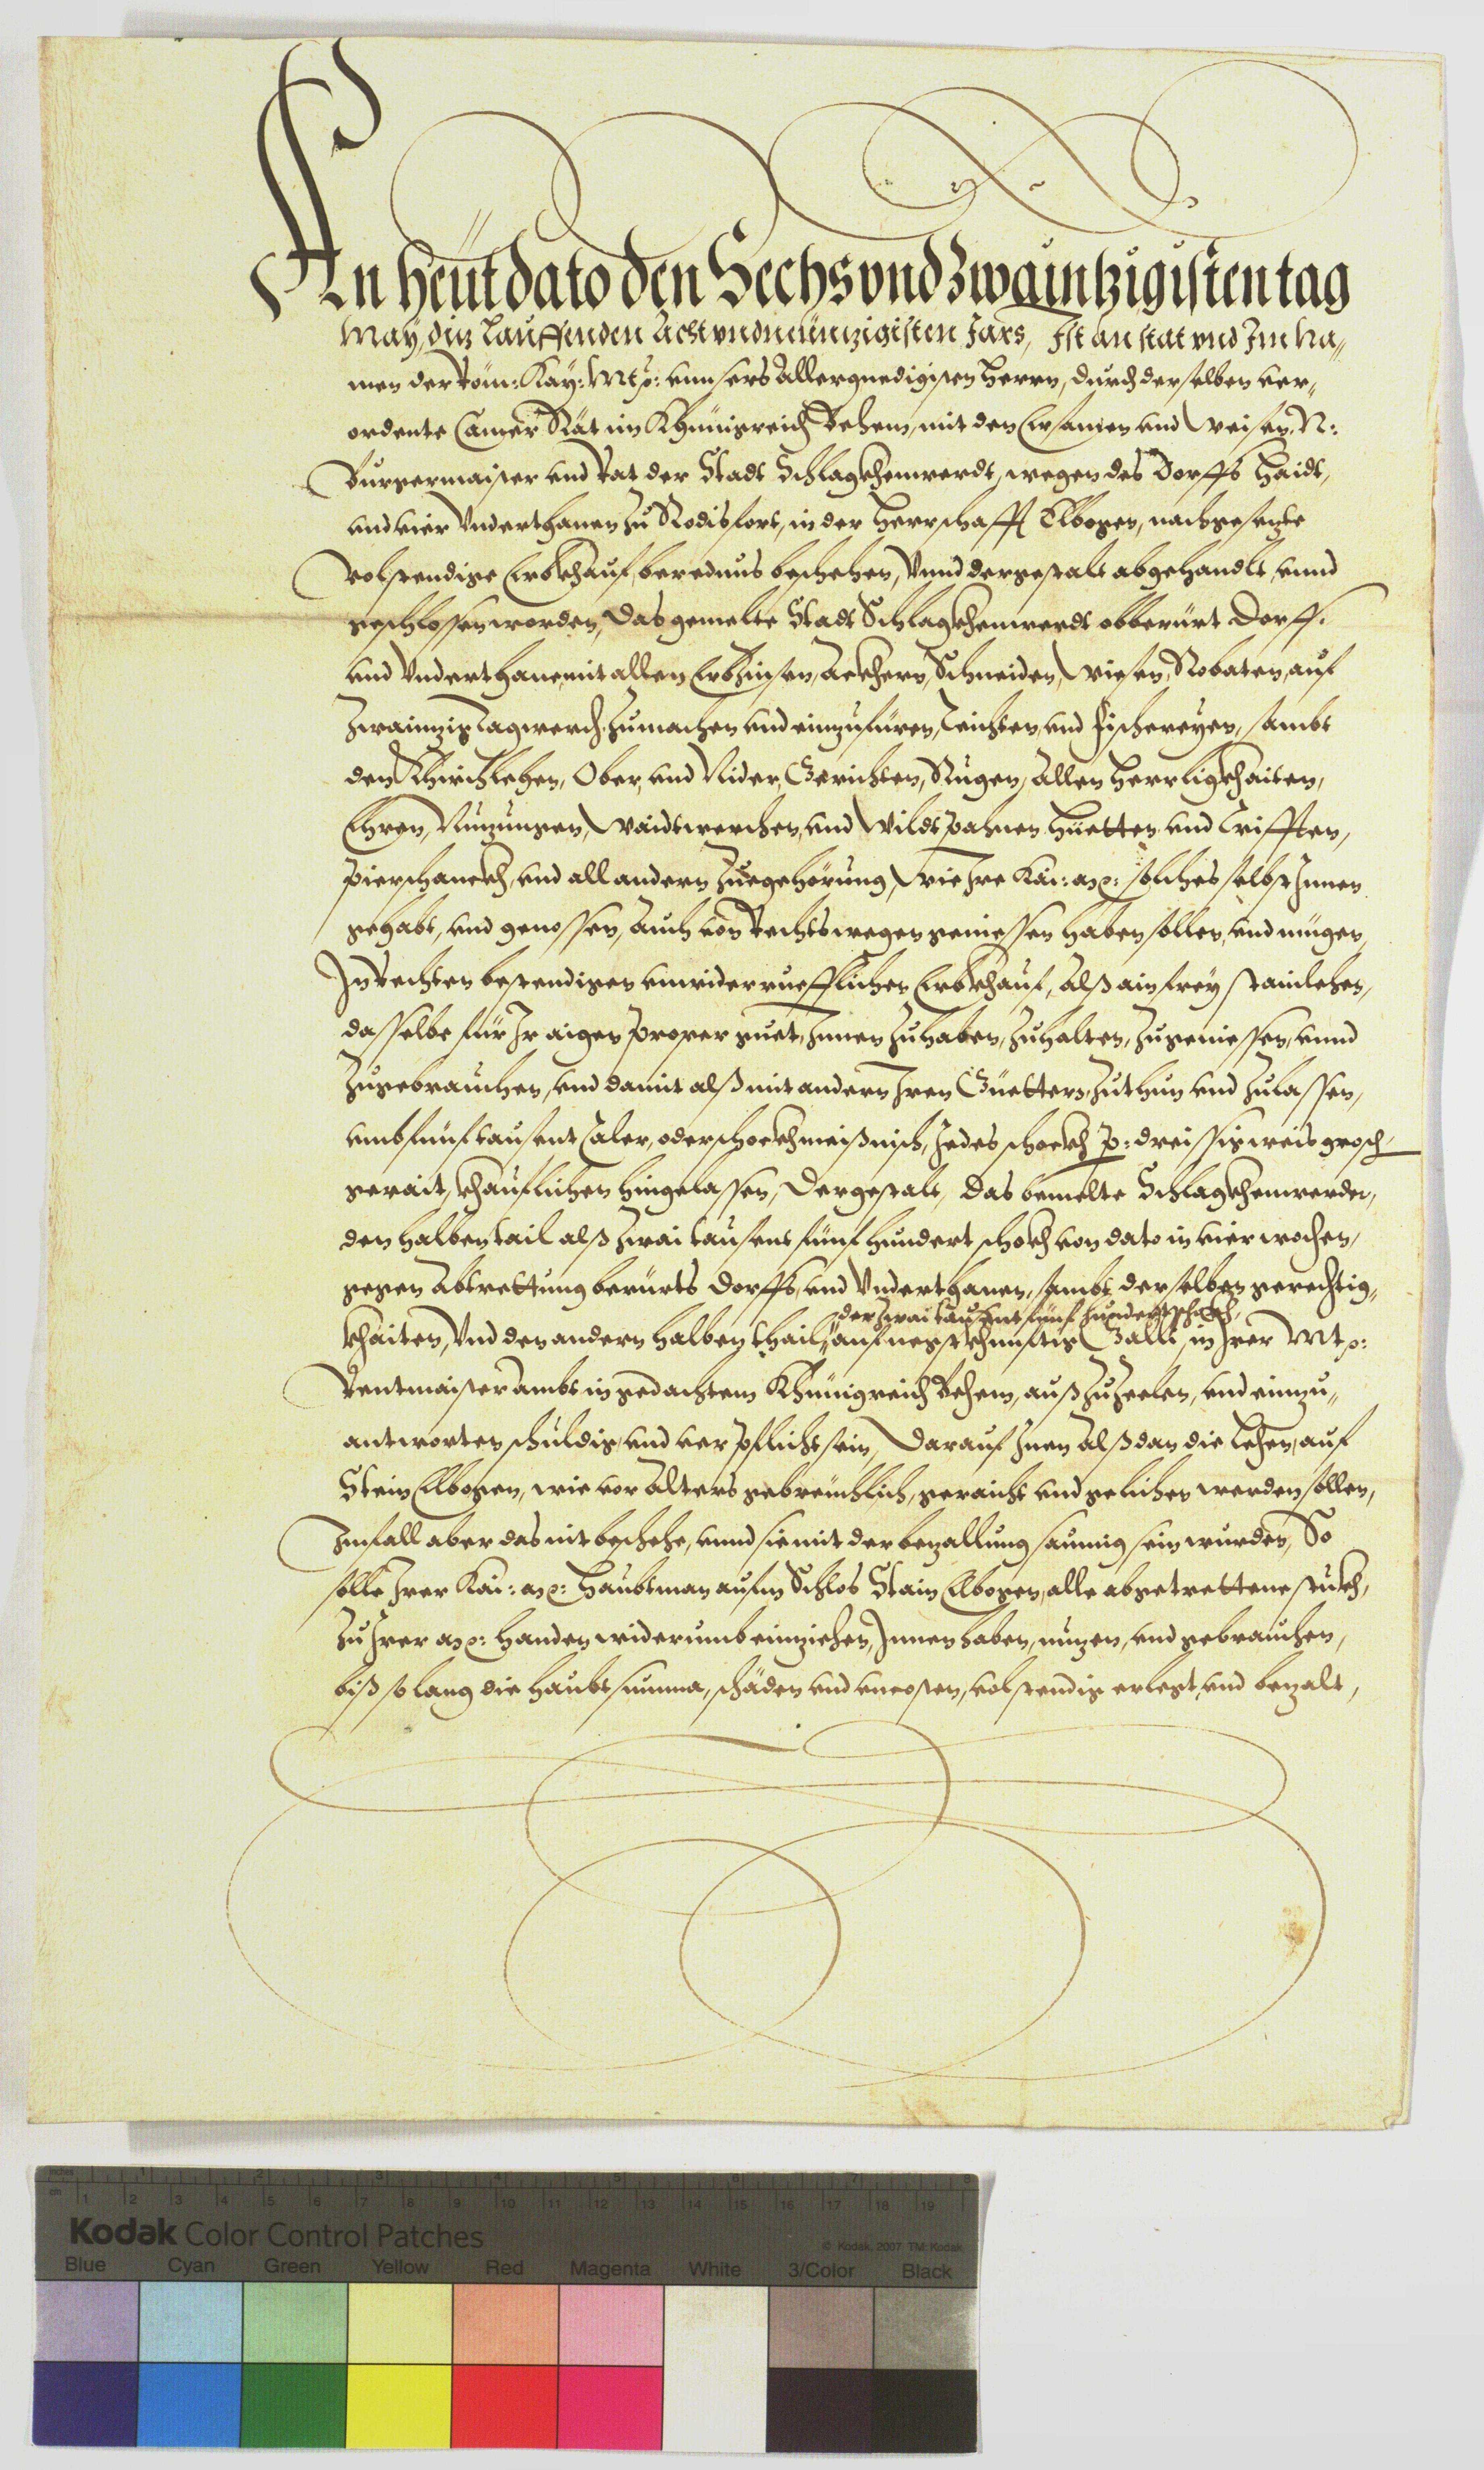 An heüt dato den Sechs vnd Zwaintzigisten tag
May, diz lauffenden Acht vnd neünzigisten Jars, Ist an stat vnd Im Na„
men der Röm: Kay: Mt: vnnsers Allergnedigisten Herrn, durch derselben ver„
ordente Camer Rät im Khünigreich Behem, mit den Ersamen vnd Weisen, N:
Burgermaister vnd Rat der Stadt Schlagkhenwerdt, wegen des Dorffs Haidt,
vnd vier Vnderthanen zu Rodisfort, in der Herrschafft Elbogen, nachgesezte
volstendige Erbkhauf, berednus beschehen, Vnnd dergestalt abgehandlt, vnnd
geschlossen worden, Das gemelte Stadt Schlagkhenwerdt obberürt Dorff,
vnd Vnderthane, mit allen Erbzinsen, Äckhern, Schneiden, Wiesen, Robaten, auf
Zwainzig Tagwerch zumachen vnd einzufüren, Teichten, vnd Fischereyen, sambt
den Khirchlehen, Ober, vnd Nider, Gerichten, Rugen, Allen Herrligkhaiten,
Ehren, Nuzungen, Waidtwerchen, vnd Wildtpahnen, Huetten vnd Trifften,
Pierschanckh, vnd all andern Zuegehörung, Wie Ire Kai: Mt: solches selbst Innen
gehabt, vnd genossen, Auch von Rechtswegen geniessen haben sollen, vnd mügen,
In Rechten bestendigen vnwiderruefflichen Erbkhauf, Alß ain frey Stainlehen,
dasselbe für Ir aigen proper guet, Innen zuhaben, zuhalten, zugeniessen, vnnd
zugebrauchen, vnd damit alß mit andern Iren Güettern, zuthun vnd zulassen,
vmb fünf tausent Taler, oder schockh meißnisch, Jedes schockh p: dreissig weis grosch
gerait, khauflichen hingelassen, Dergestalt, das bemelte Schlagkhenwerder,
den halben tail alß Zwai tausent fünf hundert schockh von dato in vier wochen,
gegen Abtrettung berürts Dorffs, vnd Vnderthanen, sambt derselben gerechtig„
der Zwai tausent fünf hundert schockh,
khaiten, Vnd den andern halben thail, auf negstkhünftig Galli, in Irer Mt:
Rentmaisterambt in gedachtem Khünigreich Behem, auß zu zeelen, vnd einzu„
antworten schuldig, vnd verpflicht sein, Darauf Inen Alß dan die Lehen, auf
Stein Elbogen, wie vor Alters gebreüchlich, geraicht vnd gelihen werden sollen,
Im fall aber das nit beschehe, vnnd sie mit der bezallung saumig sein wurden, So
solle Irer Kai: Mt: Haubtman aufm Schlos Stain Elbogen, alle abgetrettene stuckh,
zu Irer Mt: Handen widerumb einziehen, Innen haben, nuzen, vnd gebrauchen,
biß so lang die Haubtsumma, schäden vnd vncosten, volstendig erlegt, vnd bezalt,
Kodak Color Control Patches
© Kodak, 2007 TM: Kodak
Blue Cyan Green Yellow Red Magenta White 3/Color Black